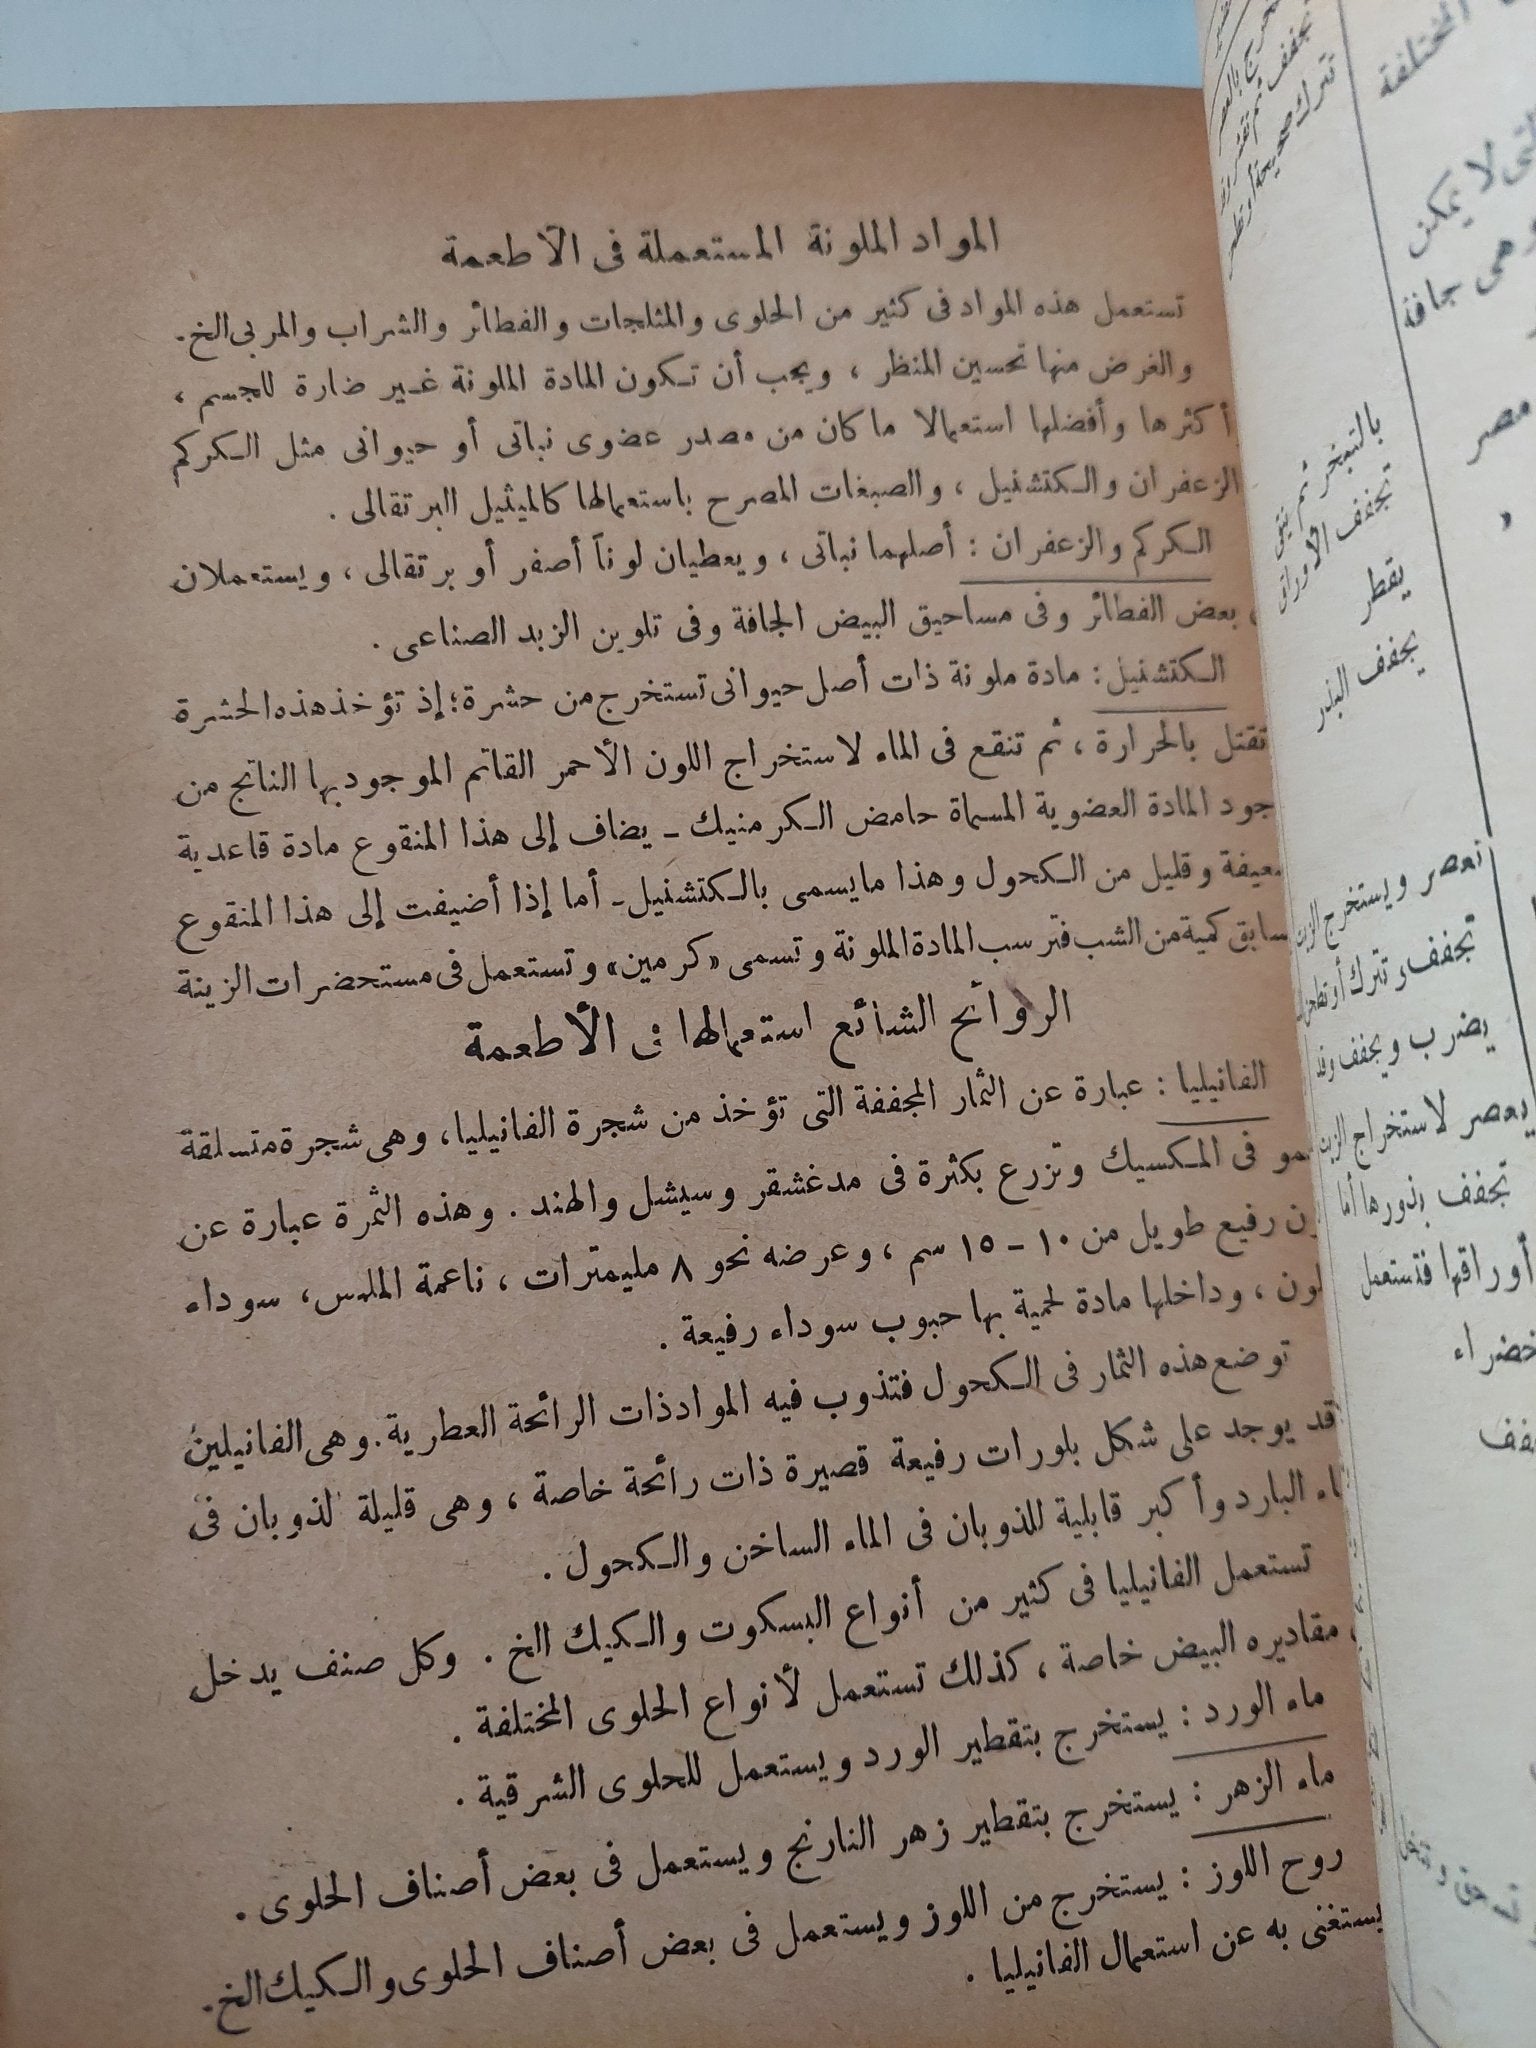 المواد الملونة المستعملة فى الأطعمة
تستعمل هذه المواد فى كثير من الحلوى والمثلجات والفطائر والشراب والمربى الخ.
والغرض منها تحسين المنظر ، ويجب أن تكون المادة الملونة غير ضارة للجسم ،
أكثرها وأفضلها استعمالا ما كان من مصدر عضوى نباتى أو حيوانى مثل الكركم
الزعفران والكتشنيل ، والصبغات المصرح باستعمالها كالميثيل البرتقالى .
الكركم والزعفران : أصلهما نباتى ، ويعطيان لوناً أصفر أو برتقالى ، ويستعملان
بعض الفطائر وفى مساحيق البيض الجافة وفى تلوين الزبد الصناعى .
الكتشنيل : مادة ملونة ذات أصل حيوانى تستخرج من حشرة ؛ إذ تؤخذ هذه الحشرة
تقتل بالحرارة ، ثم تنقع فى الماء لاستخراج اللون الأحمر القاتم الموجود بها الناتج من
جود المادة العضوية المسماة حامض الكرمنيك - يضاف إلى هذا المنقوع مادة قاعدية
عيفة وقليل من الكحول وهذا مايسمى بالكتشنيل - أما إذا أضيفت إلى هذا المنقوع
سابق كمية من الشب فترسب المادة الملونة وتسمى «كرمين» وتستعمل فى مستحضرات الزينة
الروائح الشائع استعمالها فى الأطعمة
الفانيليا : عبارة عن الثمار المجففة التى تؤخذ من شجرة الفانيليا ، وهى شجرة متسلقة
مو فى المكسيك وتزرع بكثرة فى مدغشقر وسيشل والهند . وهذه الثمرة عبارة عن
رن رفيع طويل من ١٠ - ١٥ سم ، وعرضه نحو ٨ مليمترات ، ناعمة الملمس ، سوداء
لون ، وداخلها مادة لحمية بها حبوب سوداء رفيعة .
توضع هذه الثمار فى الكحول فتذوب فيه المواد ذات الرائحة العطرية . وهى الفانيلين
قد يوجد على شكل بلورات رفيعة قصيرة ذات رائحة خاصة ، وهى قليلة لذوبان فى
اء البارد وأكبر قابلية للذوبان فى الماء الساخن والكحول .
تستعمل الفانيليا فى كثير من أنواع البسكوت والكيك الخ . وكل صنف يدخل
مقاديره البيض خاصة ، كذلك تستعمل لأنواع الحلوى المختلفة .
ماء الورد : يستخرج بتقطير الورد ويستعمل للحلوى الشرقية .
ماء الزهر : يستخرج بتقطير زهر النارنج ويستعمل فى بعض أصناف الحلوى .
روح اللوز : يستخرج من اللوز ويستعمل فى بعض أصناف الحلوى والكيك الخ .
يستغنى به عن استعمال الفانيليا .
المختلفة
تى لا يمكن
وهى جافة
مصر
تترك صحيحة أو
بالتبخر ثم ينقى
تجفف الأوراق
يقطر
يجفف البذر
تعصر ويستخرج الزيت
تجفف وتترك أو تطحن
يضرب ويجفف وقد
يعصر لاستخراج الزيت
تجفف بذورها أما
أوراقها فتستعمل
خضراء